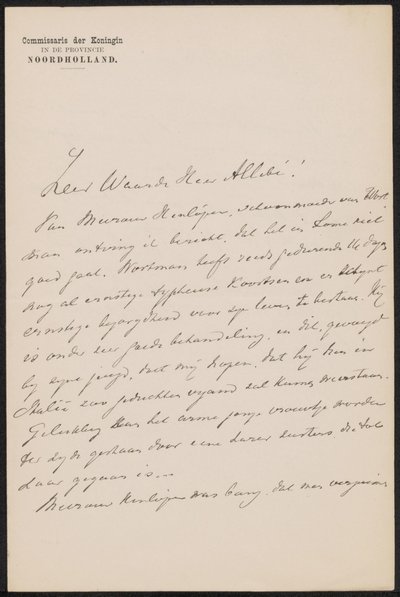 Commissaris der Koningin
IN DE PROVINCIE
NOORDHOLLAND.
Zeer Waarde Heer Allebé!
Van Mevrouw Henlijer, schoonmoeder van Wort-
man ontving ik bericht, dat het in Rome niet
goed gaat. Wortman heeft reeds gedurende 14 dagen
nog al ernstige typheuse koortsen en er schijnt
ernstige bezorgdheid voor zijn leven te bestaan. Hij
is onder zeer goede behandeling, en dit, gevoegd
by zyne jeugd, doet mij hopen, dat hij den in
Italië zoo geduchten vyand zal kunnen weerstaan.
Gelukkig kan het arme jonge vrouwtje worden
ter zyde gestaan door eene harer zusters die
daar gegaan is. —
Mevrouw was bang, dat men